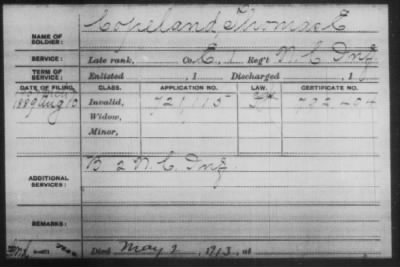 NAME OF SOLDIER: Copeland, Thomas E
SERVICE: Late rank, Co. E, 1 Reg't N.C. Inf
TERM OF SERVICE: Enlisted , 1 Discharged , 1
DATE OF FILING. CLASS. APPLICATION NO. LAW. CERTIFICATE NO.
1889 Aug 10 Invalid,
Widow,
Minor,
ADDITIONAL SERVICES: B 2 N.C. Inf
REMARKS:
Died May 2, 1913, at